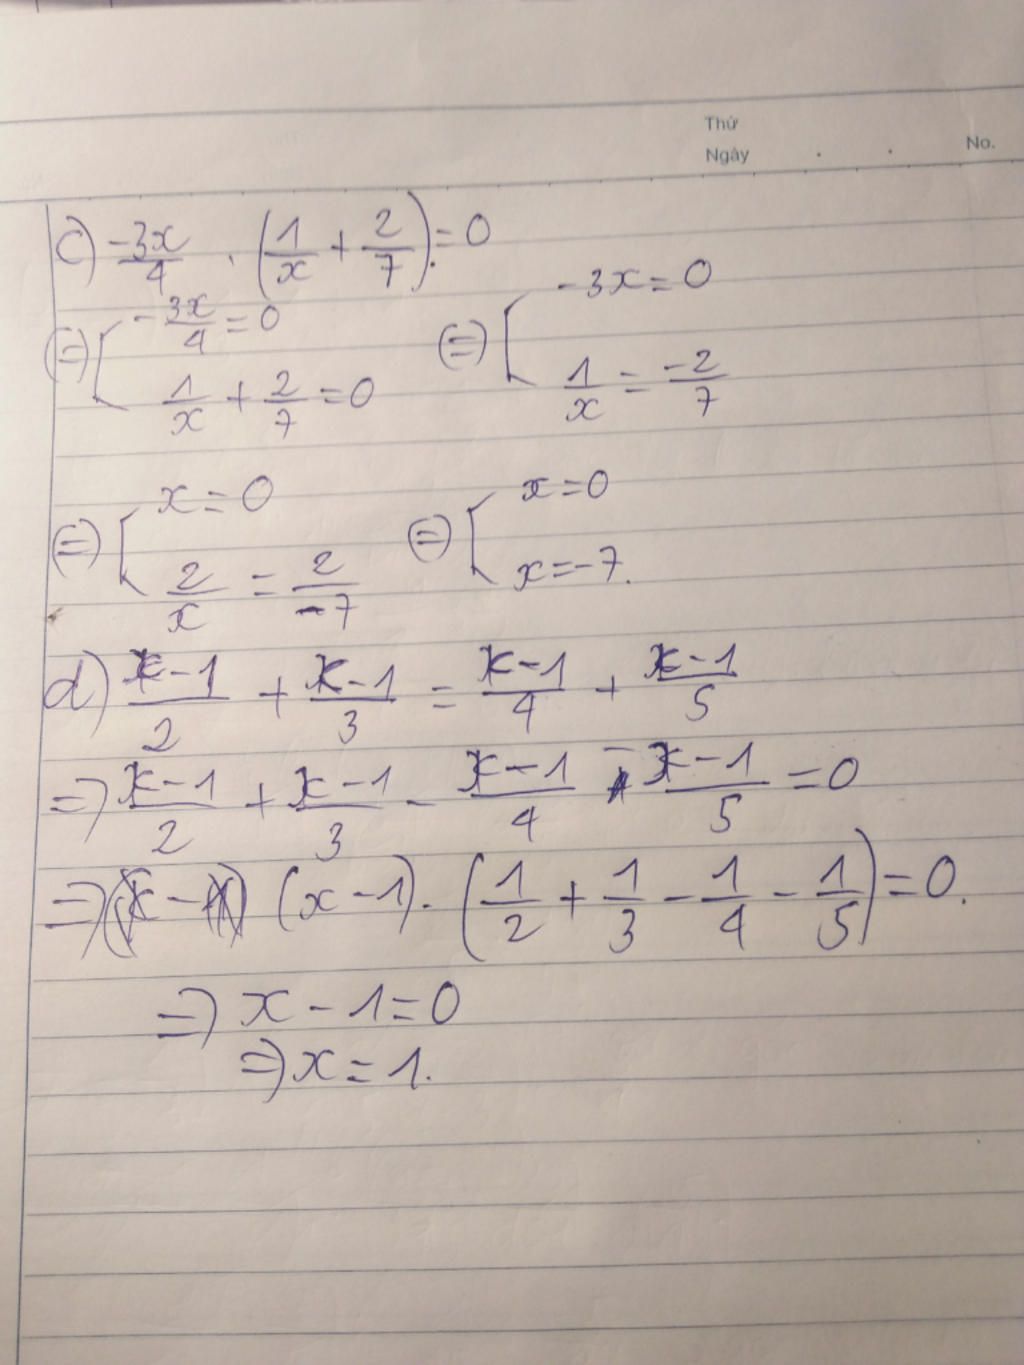 Thứ
Ngày . . No.
c) \frac{-3x}{4} . (\frac{1}{x} + \frac{2}{7}) = 0
(=) [ -\frac{3x}{4} = 0 (=) [ -3x = 0
\frac{1}{x} + \frac{2}{7} = 0 \frac{1}{x} = \frac{-2}{7}
(=) [ x = 0 (=) [ x = 0
\frac{2}{x} = \frac{2}{-7} x = -7.
d) \frac{x-1}{2} + \frac{x-1}{3} = \frac{x-1}{4} + \frac{x-1}{5}
=) \frac{x-1}{2} + \frac{x-1}{3} - \frac{x-1}{4} - \frac{x-1}{5} = 0
=) (x-1). (\frac{1}{2} + \frac{1}{3} - \frac{1}{4} - \frac{1}{5}) = 0.
=) x - 1 = 0
=) x = 1.